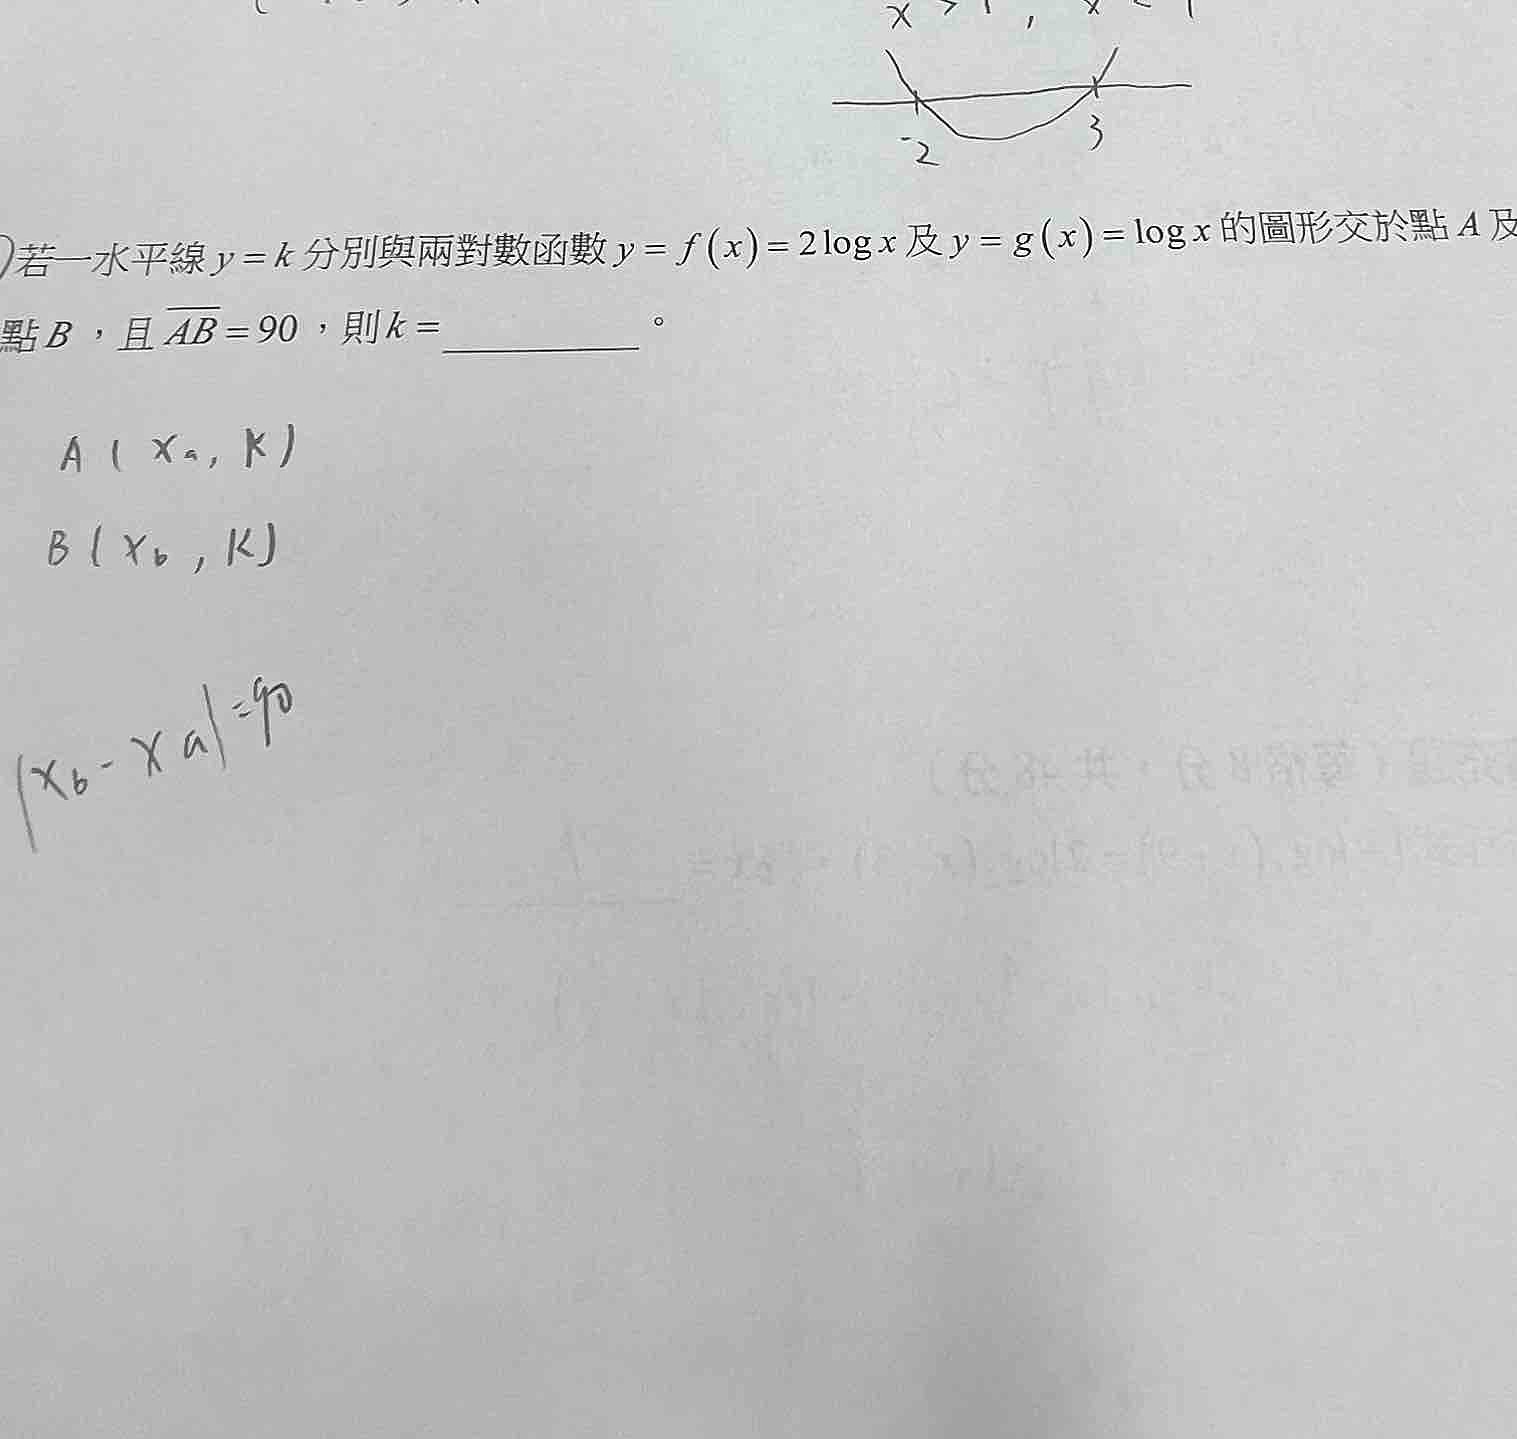 -2 3
)若一水平線 y = k 分別與兩對數函數 y = f(x) = 2 log x 及 y = g(x) = log x 的圖形交於點 A 及
點 B，且 \overline{AB} = 90，則 k = ________。
A ( xa, k )
B ( xb , k )
|xb - xa| = 90